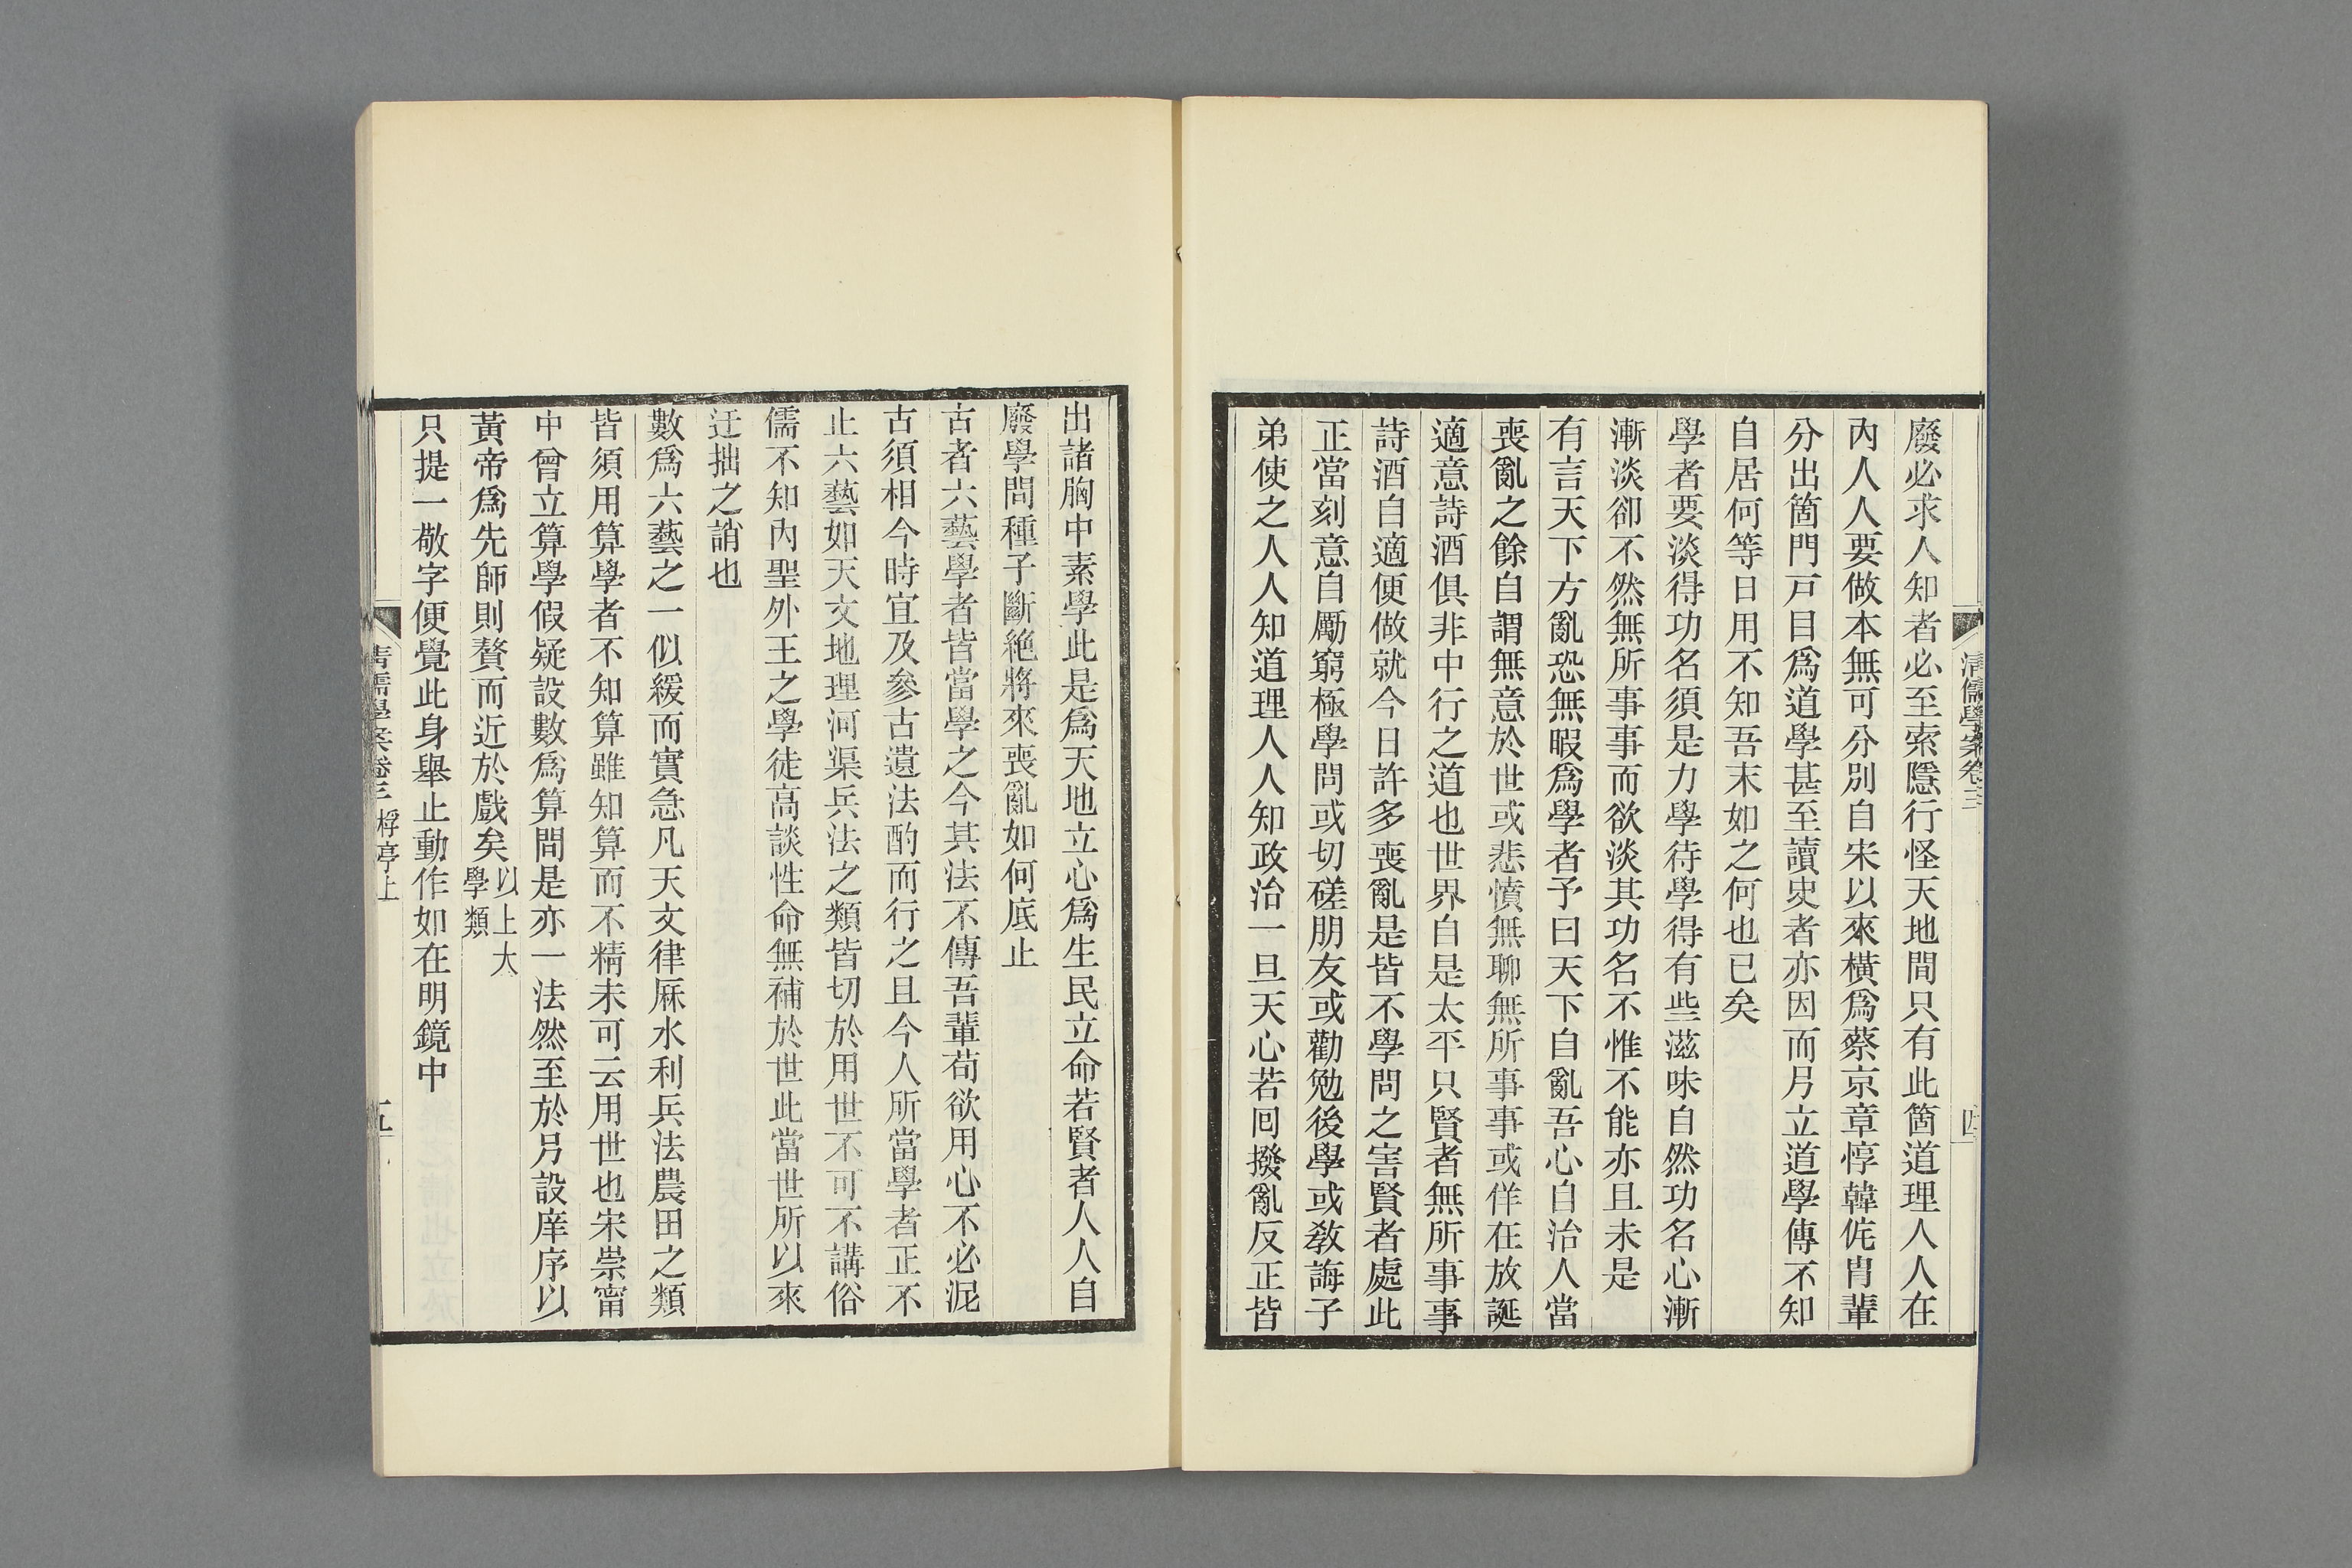 廢必求人知者必至索隱行怪天地間只有此箇道理人人在
內人人要做本無可分別自宋以來橫爲蔡京章惇韓侂胄輩
分出箇門戸目爲道學甚至讀史者亦因而另立道學傳不知
自居何等日用不知吾末如之何也已矣
學者要淡得功名須是力學待學得有些滋味自然功名心漸
漸淡卻不然無所事事而欲淡其功名不惟不能亦且未是
有言天下方亂恐無暇爲學者予曰天下自亂吾心自治人當
喪亂之餘自謂無意於世或悲憤無聊無所事事或佯在放誕
適意詩酒俱非中行之道也世界自是太平只賢者無所事事
詩酒自適便做就今日許多喪亂是皆不學問之害賢者處此
正當刻意自勵窮極學問或切磋朋友或勸勉後學或教誨子
弟使之人人知道理人人知政治一旦天心若囘撥亂反正皆
清儒學案卷三
四
出諸胸中素學此是爲天地立心爲生民立命若賢者人人自
廢學問種子斷絶將來喪亂如何底止
古者六藝學者皆當學之今其法不傳吾輩苟欲用心不必泥
古須相今時宜及參古遺法酌而行之且今人所當學者正不
止六藝如天文地理河渠兵法之類皆切於用世不可不講俗
儒不知內聖外王之學徒高談性命無補於世此當世所以來
迂拙之誚也
數爲六藝之一似緩而實急凡天文律厤水利兵法農田之類
皆須用算學者不知算雖知算而不精未可云用世也宋崇甯
中曾立算學假疑設數爲算問是亦一法然至於另設庠序以
黃帝爲先師則贅而近於戲矣以上大學類
只提一敬字便覺此身舉止動作如在明鏡中
清儒學案卷三 桴亭上
五